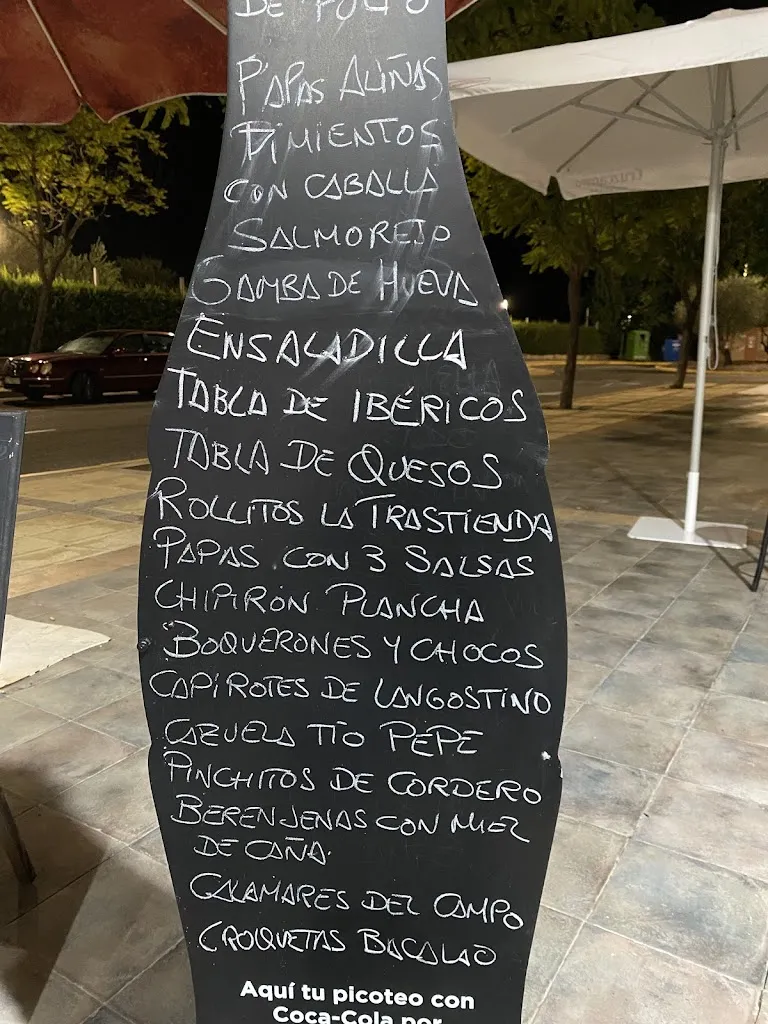 PAPAS ALIÑAS
PIMIENTOS
CON CABALLA
SALMOREJO
GAMBA DE HUEVA
ENSALADILLA
TABLA DE IBÉRICOS
TABLA DE QUESOS
ROLLITOS LA TRASTIENDA
PAPAS CON 3 SALSAS
CHIPIRÓN PLANCHA
BOQUERONES Y CHOCOS
CAPIROTES DE LANGOSTINO
CAZUELA TÍO PEPE
PINCHITOS DE CORDERO
BERENJENAS CON MIEL
DE CAÑA.
CALAMARES DEL CAMPO
CROQUETAS BACALAO
Aquí tu picoteo con
Coca-Cola por